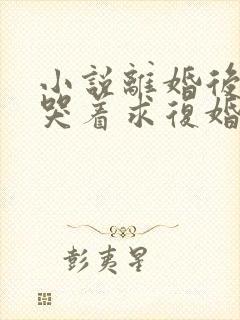 小説離婚後
哭着求復婚
彭夷星